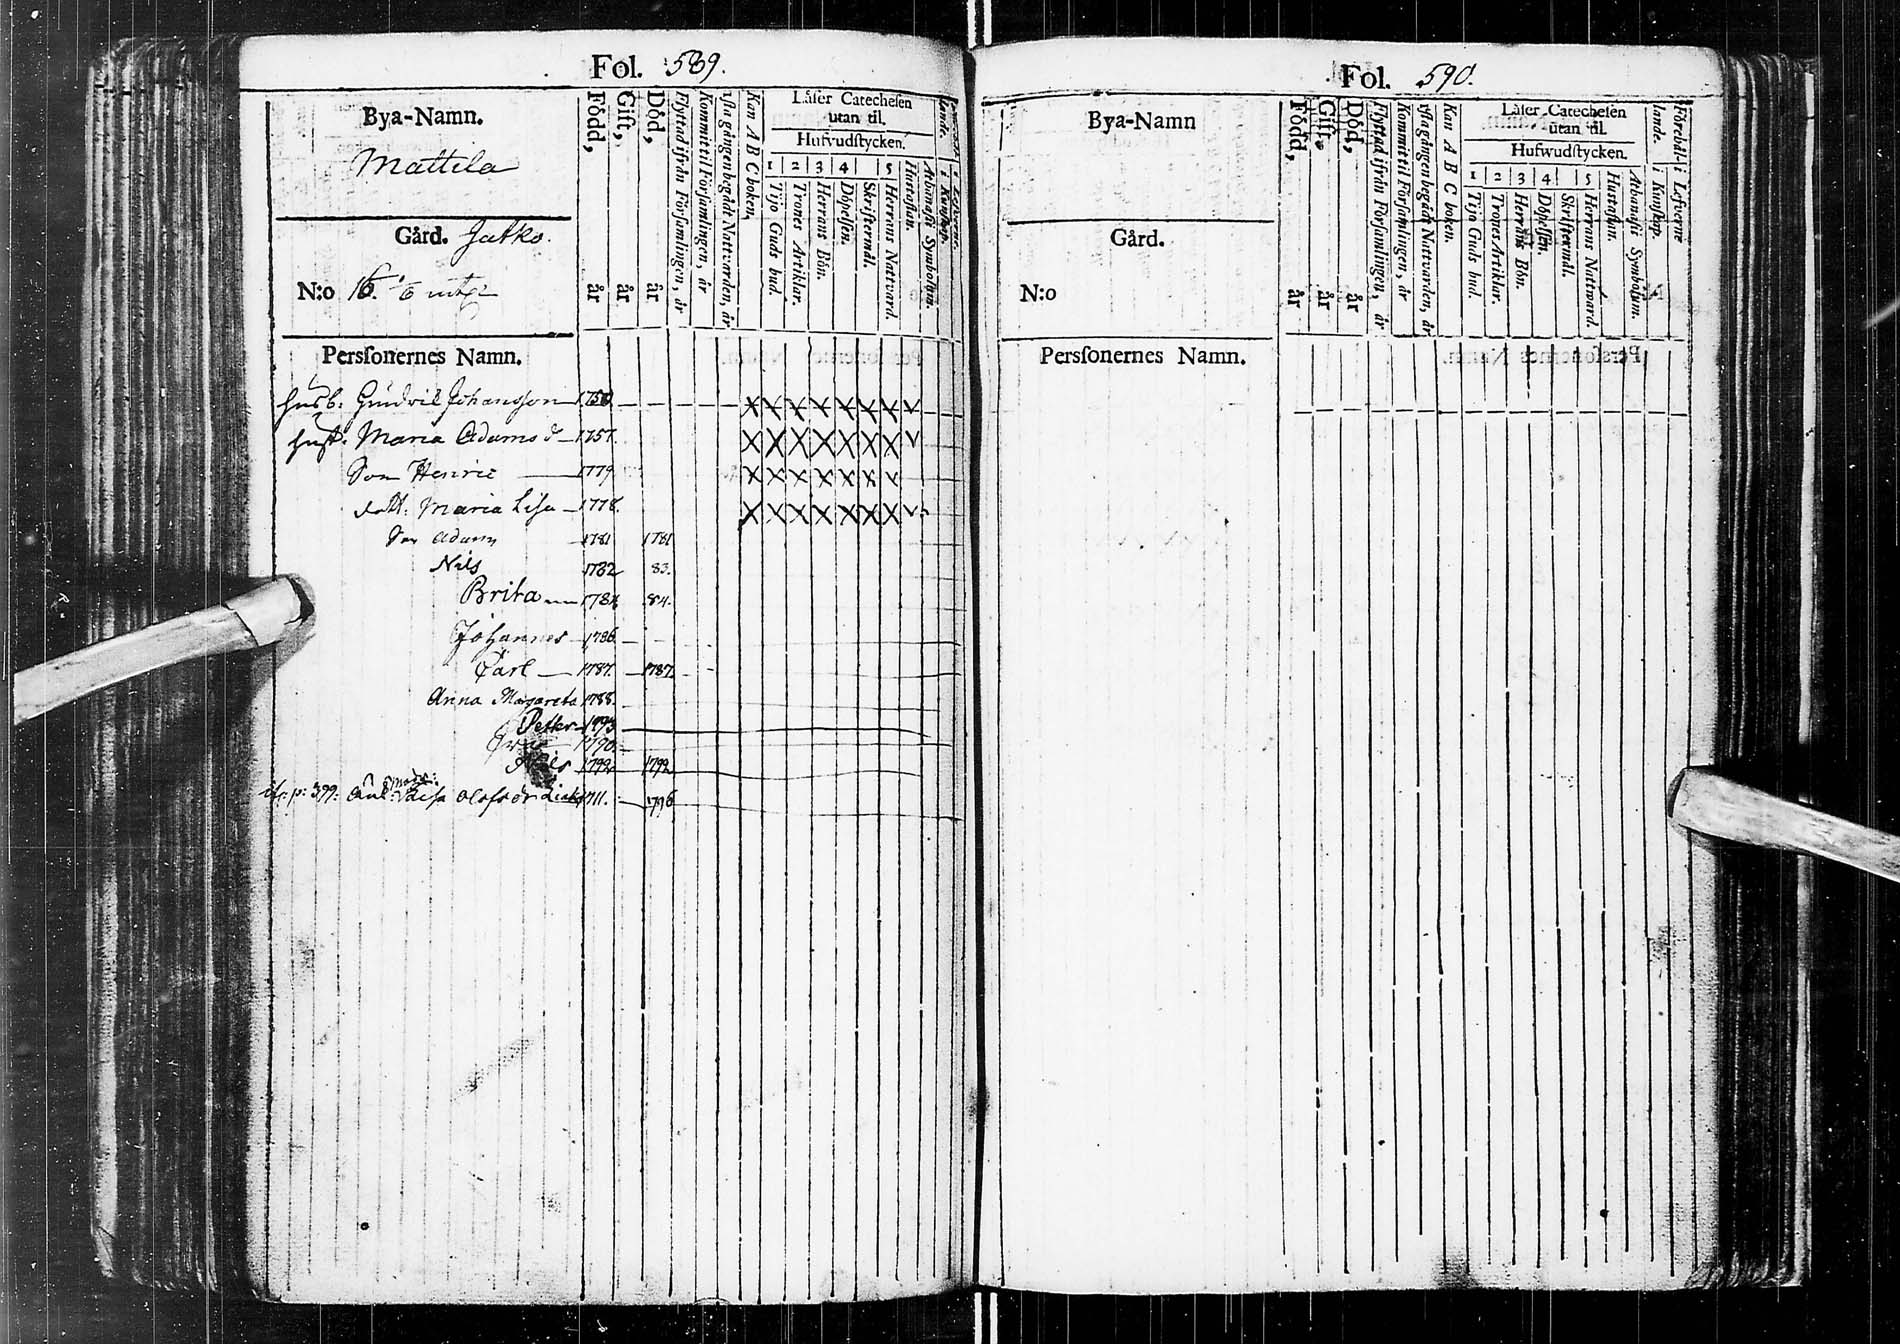 Fol. 589.
Bya-Namn.
Mattila
Gård. Jatko.
N:o 16.
Född, år
Gift, år
Död, år
Flyttad ifrån Församlingen, år
Kommit til Församlingen, år
1sta gången begådt Nattvarden, år
Kan A B C boken,
Läser Catechesen
utan til.
Hufvudstycken.
1 2 3 4 5
Tijo Guds bud.
Trones Artiklar.
Herrans Bön.
Döpelsen.
Skriftermål.
Herrans Natvard.
Hustaflan.
Athanasii Symbolum.
Persſonernes Namn.
husb: Johansson 1750
hust: Maria Adams d 1757.
Son Henric 1779
dott: Maria Lisa 1778.
Son Adam 1781 1781
Nils 1782 83.
Brita 1784 84.
Johannes 1786
Carl 1787. 1787.
Anna Margareta 1788.
Petter 1793
1790.
Nils 1792 1792
p: 399: Lisa Olofsdr 1711. 1796
Fol. 590.
Bya-Namn
Gård.
N:o
Född, år
Gift, år
Död, år
Flyttad ifrån Församlingen, år
Kommit til Församlingen, år
1sta gången begådt Nattvarden, år
Kan A B C boken.
Läser Catechesen
utan til.
Hufwudstycken.
1 2 3 4 5
Tijo Guds bud.
Trones Artiklar.
Herrans Bön.
Döpelsen.
Skriftermål.
Herrans Nattward.
Hustaflan.
Athanasii Symbolum.
Förehållande. i Kunskap.
i Lefverne
Persſonernes Namn.